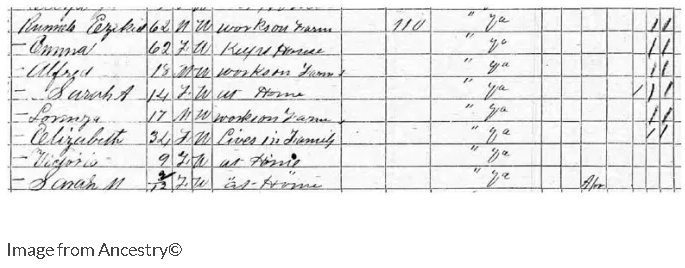 Runnels Ezekiel 62 M W works on Farm 110 " Ga 1 1
— Emma 62 F W Keeps House " Ga 1 1
— Alfred 18 M W works on Farm " Ga 1 1
— Sarah A 14 F W at Home " Ga / 1 1
— Lorenza 17 M W works on Farm " Ga 1 1
— Elizabeth 34 F W Lives in Family " Ga 1 1
— Victoria 9 F W at Home " Ga
— Sarah M 2/12 F W at Home " Ga Apr
Image from Ancestry©